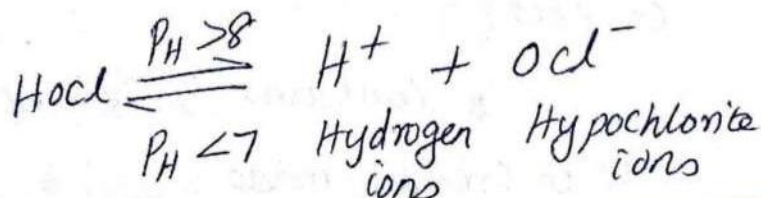 HOCl ⇌ H⁺ + OCl⁻
PH >8
PH <7
Hydrogen ions
Hypochlorite ions